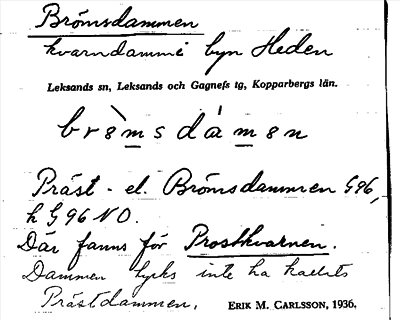 Brömsdammen
kvarndamm i byn Heden
Leksands sn, Leksands och Gagnefs tg, Kopparbergs län.
brömsdàmen
Präst- el. Brömsdammen G96,
h G96 NO.
Där fanns förr Prostkvarnen.
Dammen tycks inte ha kallats
Prästdammen.
ERIK M. CARLSSON, 1936.